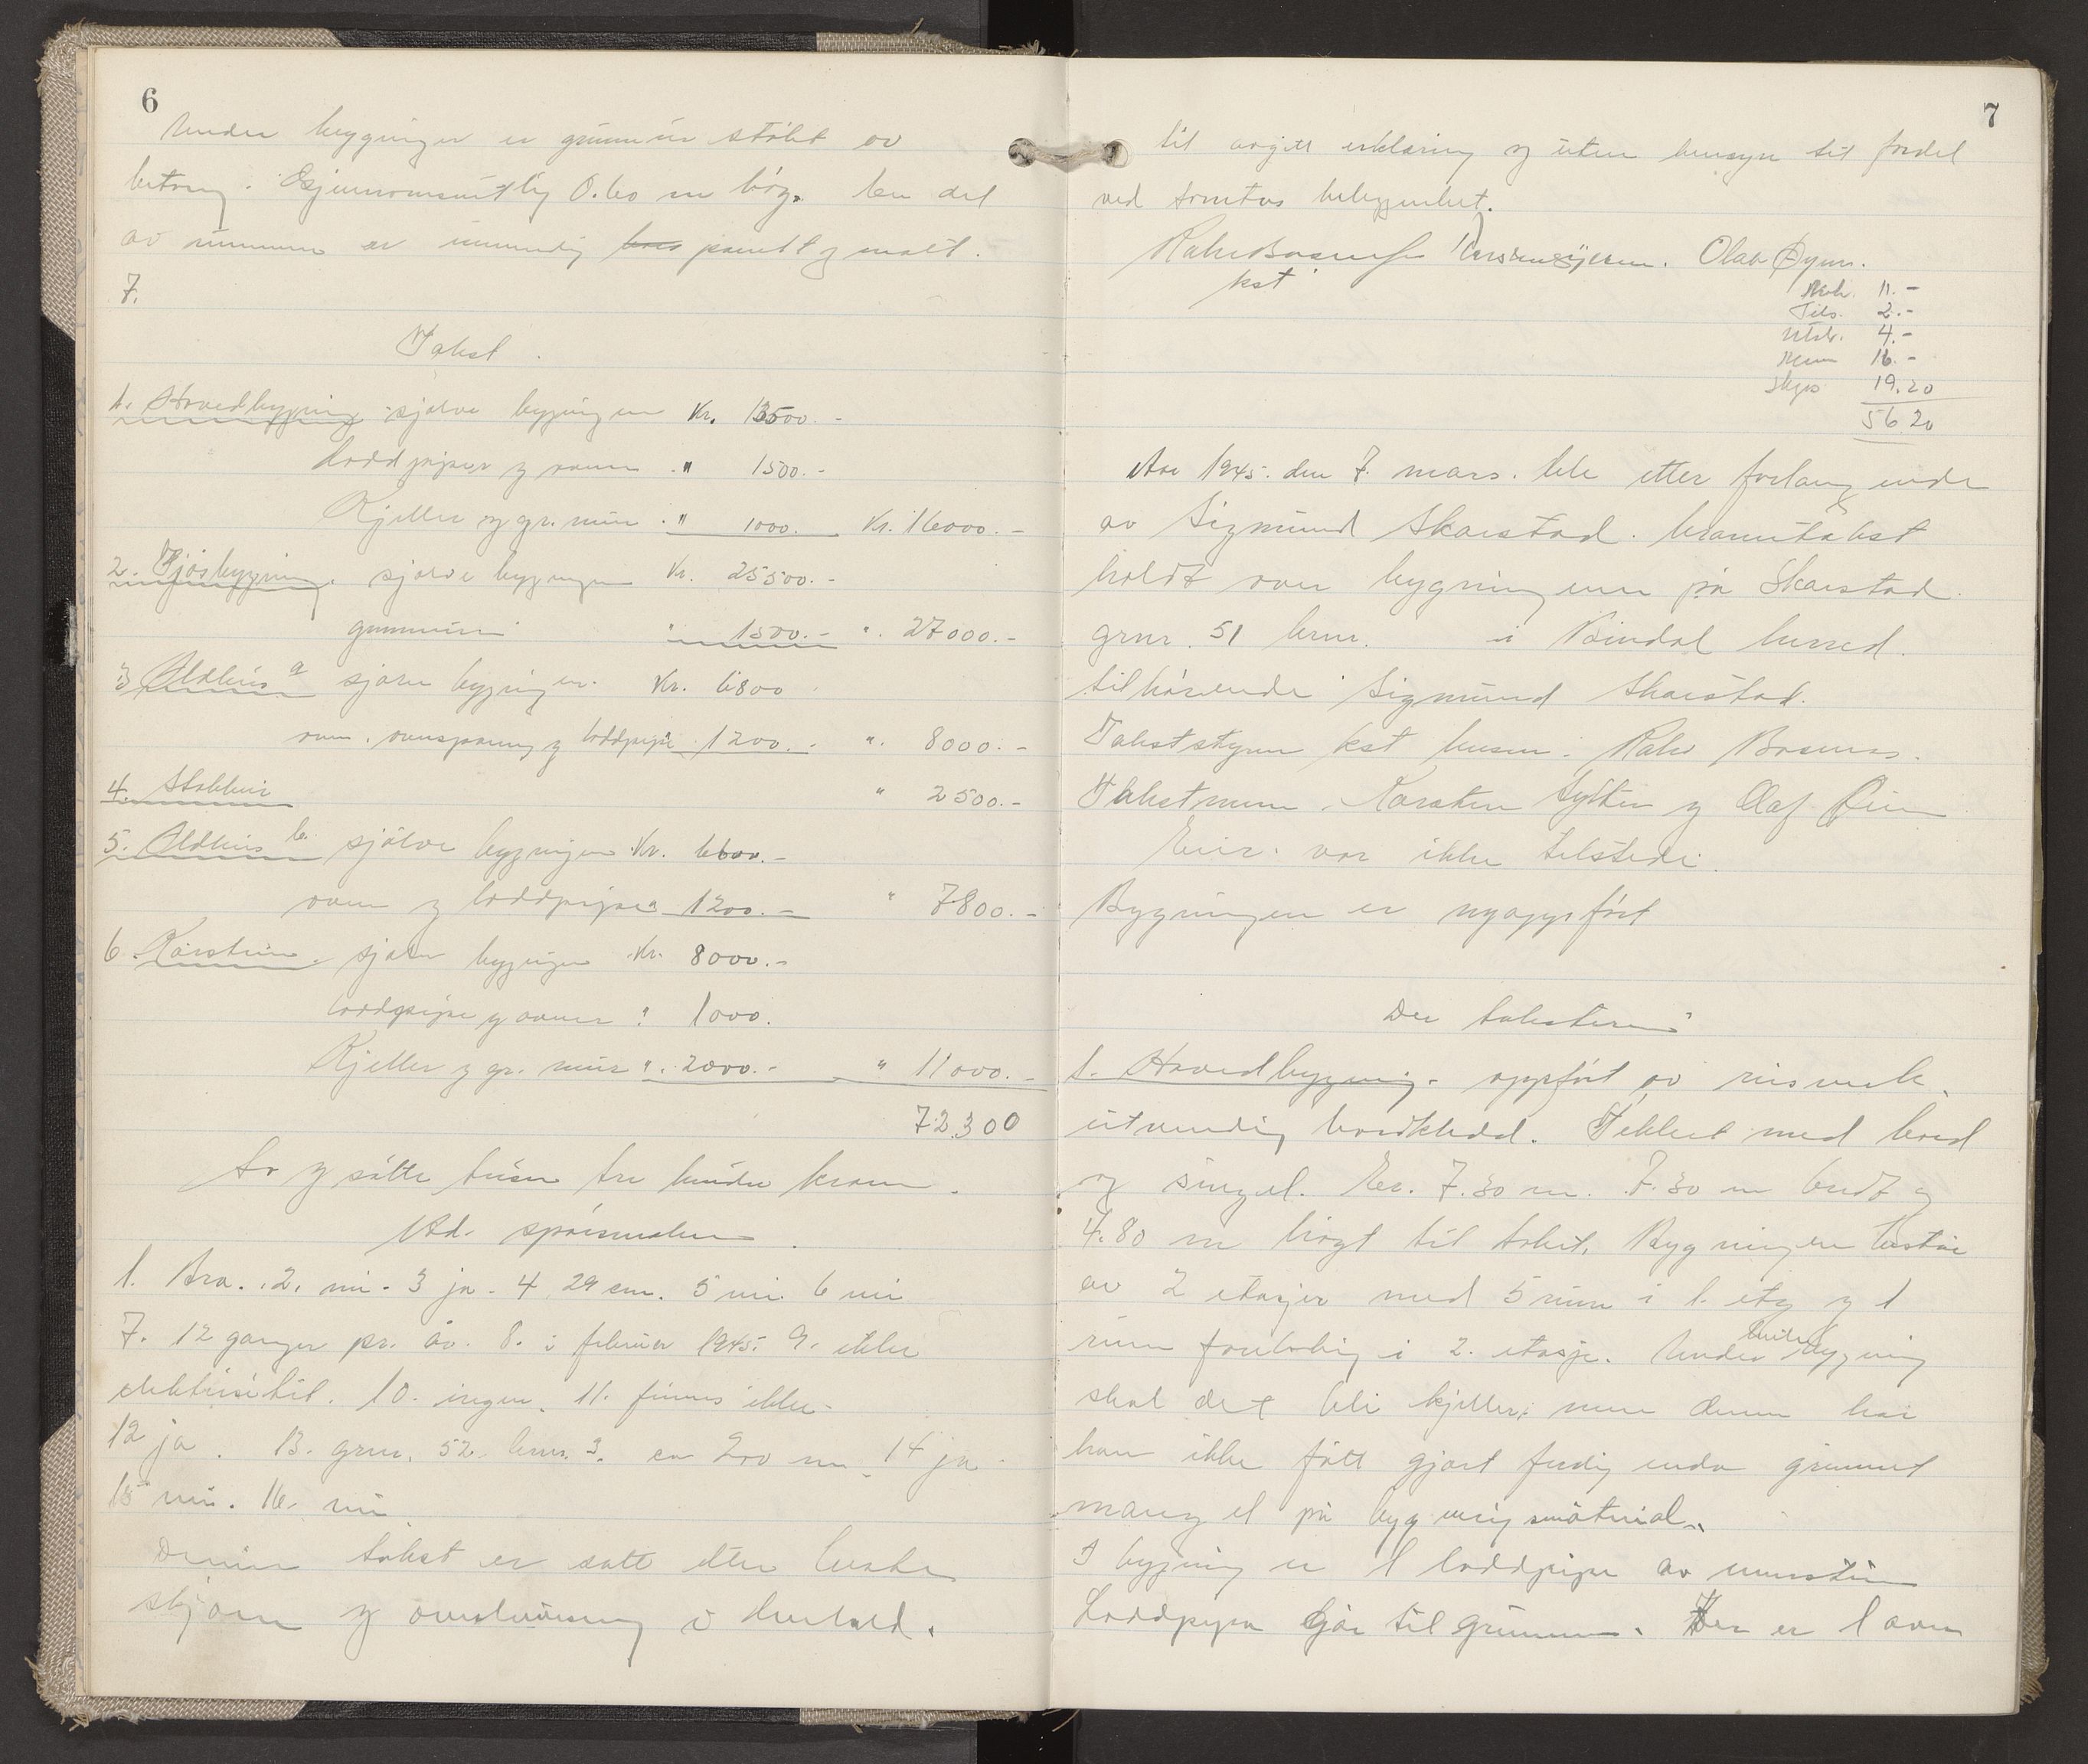 6
Under bygningen er grunnmur støbt av
betong. Gjennomsnitlig 0.60 m høg. En del
av rummene er innvendig panelt og malt.
7.
Takst.
1. Hovedbygning sjølve bygningen Kr. 13500.-
Loddpiper og ovner " 1500.-
Kjeller og gr. mur " 1000. Kr. 16000.-
2. Fjøsbygning. sjølve bygningen Kr. 25500.-
grunnmur " 1500.- " 27000.-
3 Eldhus a sjølve bygningen. Kr. 6800
ovn, og loddpipe 1200.- " 8000.-
4. Stabbur " 2500.-
5. Eldhus b. sjølve bygningen Kr. 6600.-
ovner og loddpipe " 1200.- " 7800.-
6. Kårstue. sjølve bygningen Kr. 8000.-
loddpipe og ovner " 1000.
Kjeller og gr. mur " 2000.- " 11000.-
72300
To og søtti tusen tre hundre kroner.
Ad. spørsmålene.
1. Bra. 2. nei. 3 ja. 4 29 cm. 5 nei. 6 nei
7. 12 ganger pr. år. 8. i februar 1945. 9. ikke
elektrisitet. 10. ingen. 11. finnes ikke.
12 ja. 13. grnr. 52. brnr. 3. ca 200 m. 14 ja
15 nei. 16. nei
Denne takst er satt etter beste
skjønn og overbevisning i henhold.
7
til avgitt erklæring og uten hensyn til fordel
ved tomtens beliggenhet.
Olav Øyen.
kst
11.-
Tils. 2.-
Utskr. 4.-
16.-
Skyss 19.20
56.20
År 1945. den 7. mars. ble etter forlangende
av Sigmund Skarstad. branntakst
holdt over bygningene på Skarstad
grnr. 51 brnr. i herred.
tilhørende Sigmund Skarstad.
Takststyrer kst lensm.
Takstmenn. Karsten og Olaf Øien
Eier. var ikke tilstede.
Bygningen er nyoppført
De taksterte
1. Hovedbygning. oppført av reisverk.
utvendig bordkledd. Tekket med bord
og singel. Er. 7.30 m. 7.30 m bredt og
4.80 m høgt til taket. Bygningen består
av 2 etasjer med 5 rum i 1. etg og 1
rum foreløbig i 2. etasje. Under hele bygning
skal det bli kjeller, men denne har
han ikke fått gjort ferdig enda grunnet
mangel på bygningsmaterial.
I bygning er 1 loddpipe av murstein
Loddpipen går til grunnen. Der er 1 ovn